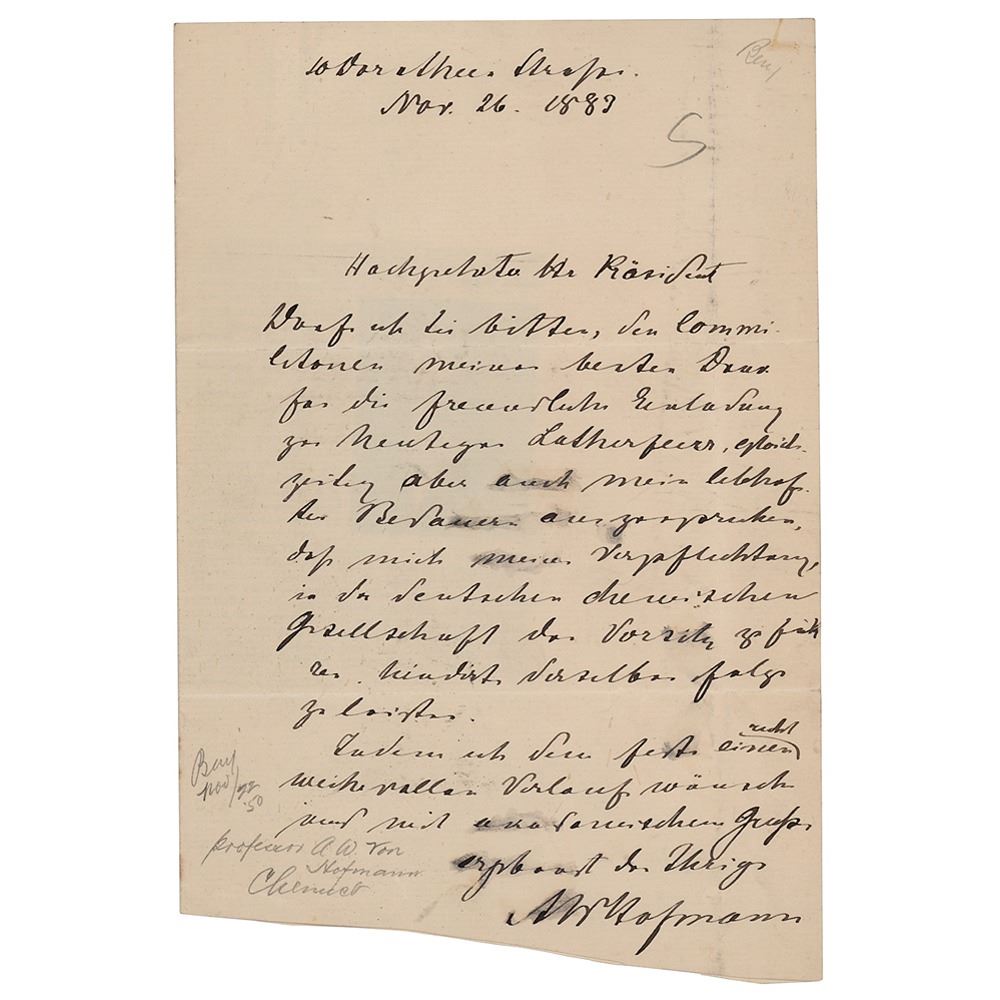 10 Dorotheen Strasse.
Nov. 26. 1883
Beny
S
Hochgeehrter Hr Präsident
Darf ich Sie bitten, den Commi-
litonen meinen besten Dank
für die freundliche Einladung
zur heutigen Lutherfeier, gleich-
zeitig aber auch mein lebhaf-
tes Bedauern auszusprechen,
daß mich meine Verpflichtung,
in der deutschen chemischen
Gesellschaft den Vorsitz zu füh
ren, hindert derselben folge
zu leisten.
Indem ich dem feste einen recht
weihevollen Verlauf wünsche
und mit academischem Gruße
ergebenst der Ihrige
AWHofmann
Beny
nov/92
.50
professor A. W. von
Hofmann
Chemist